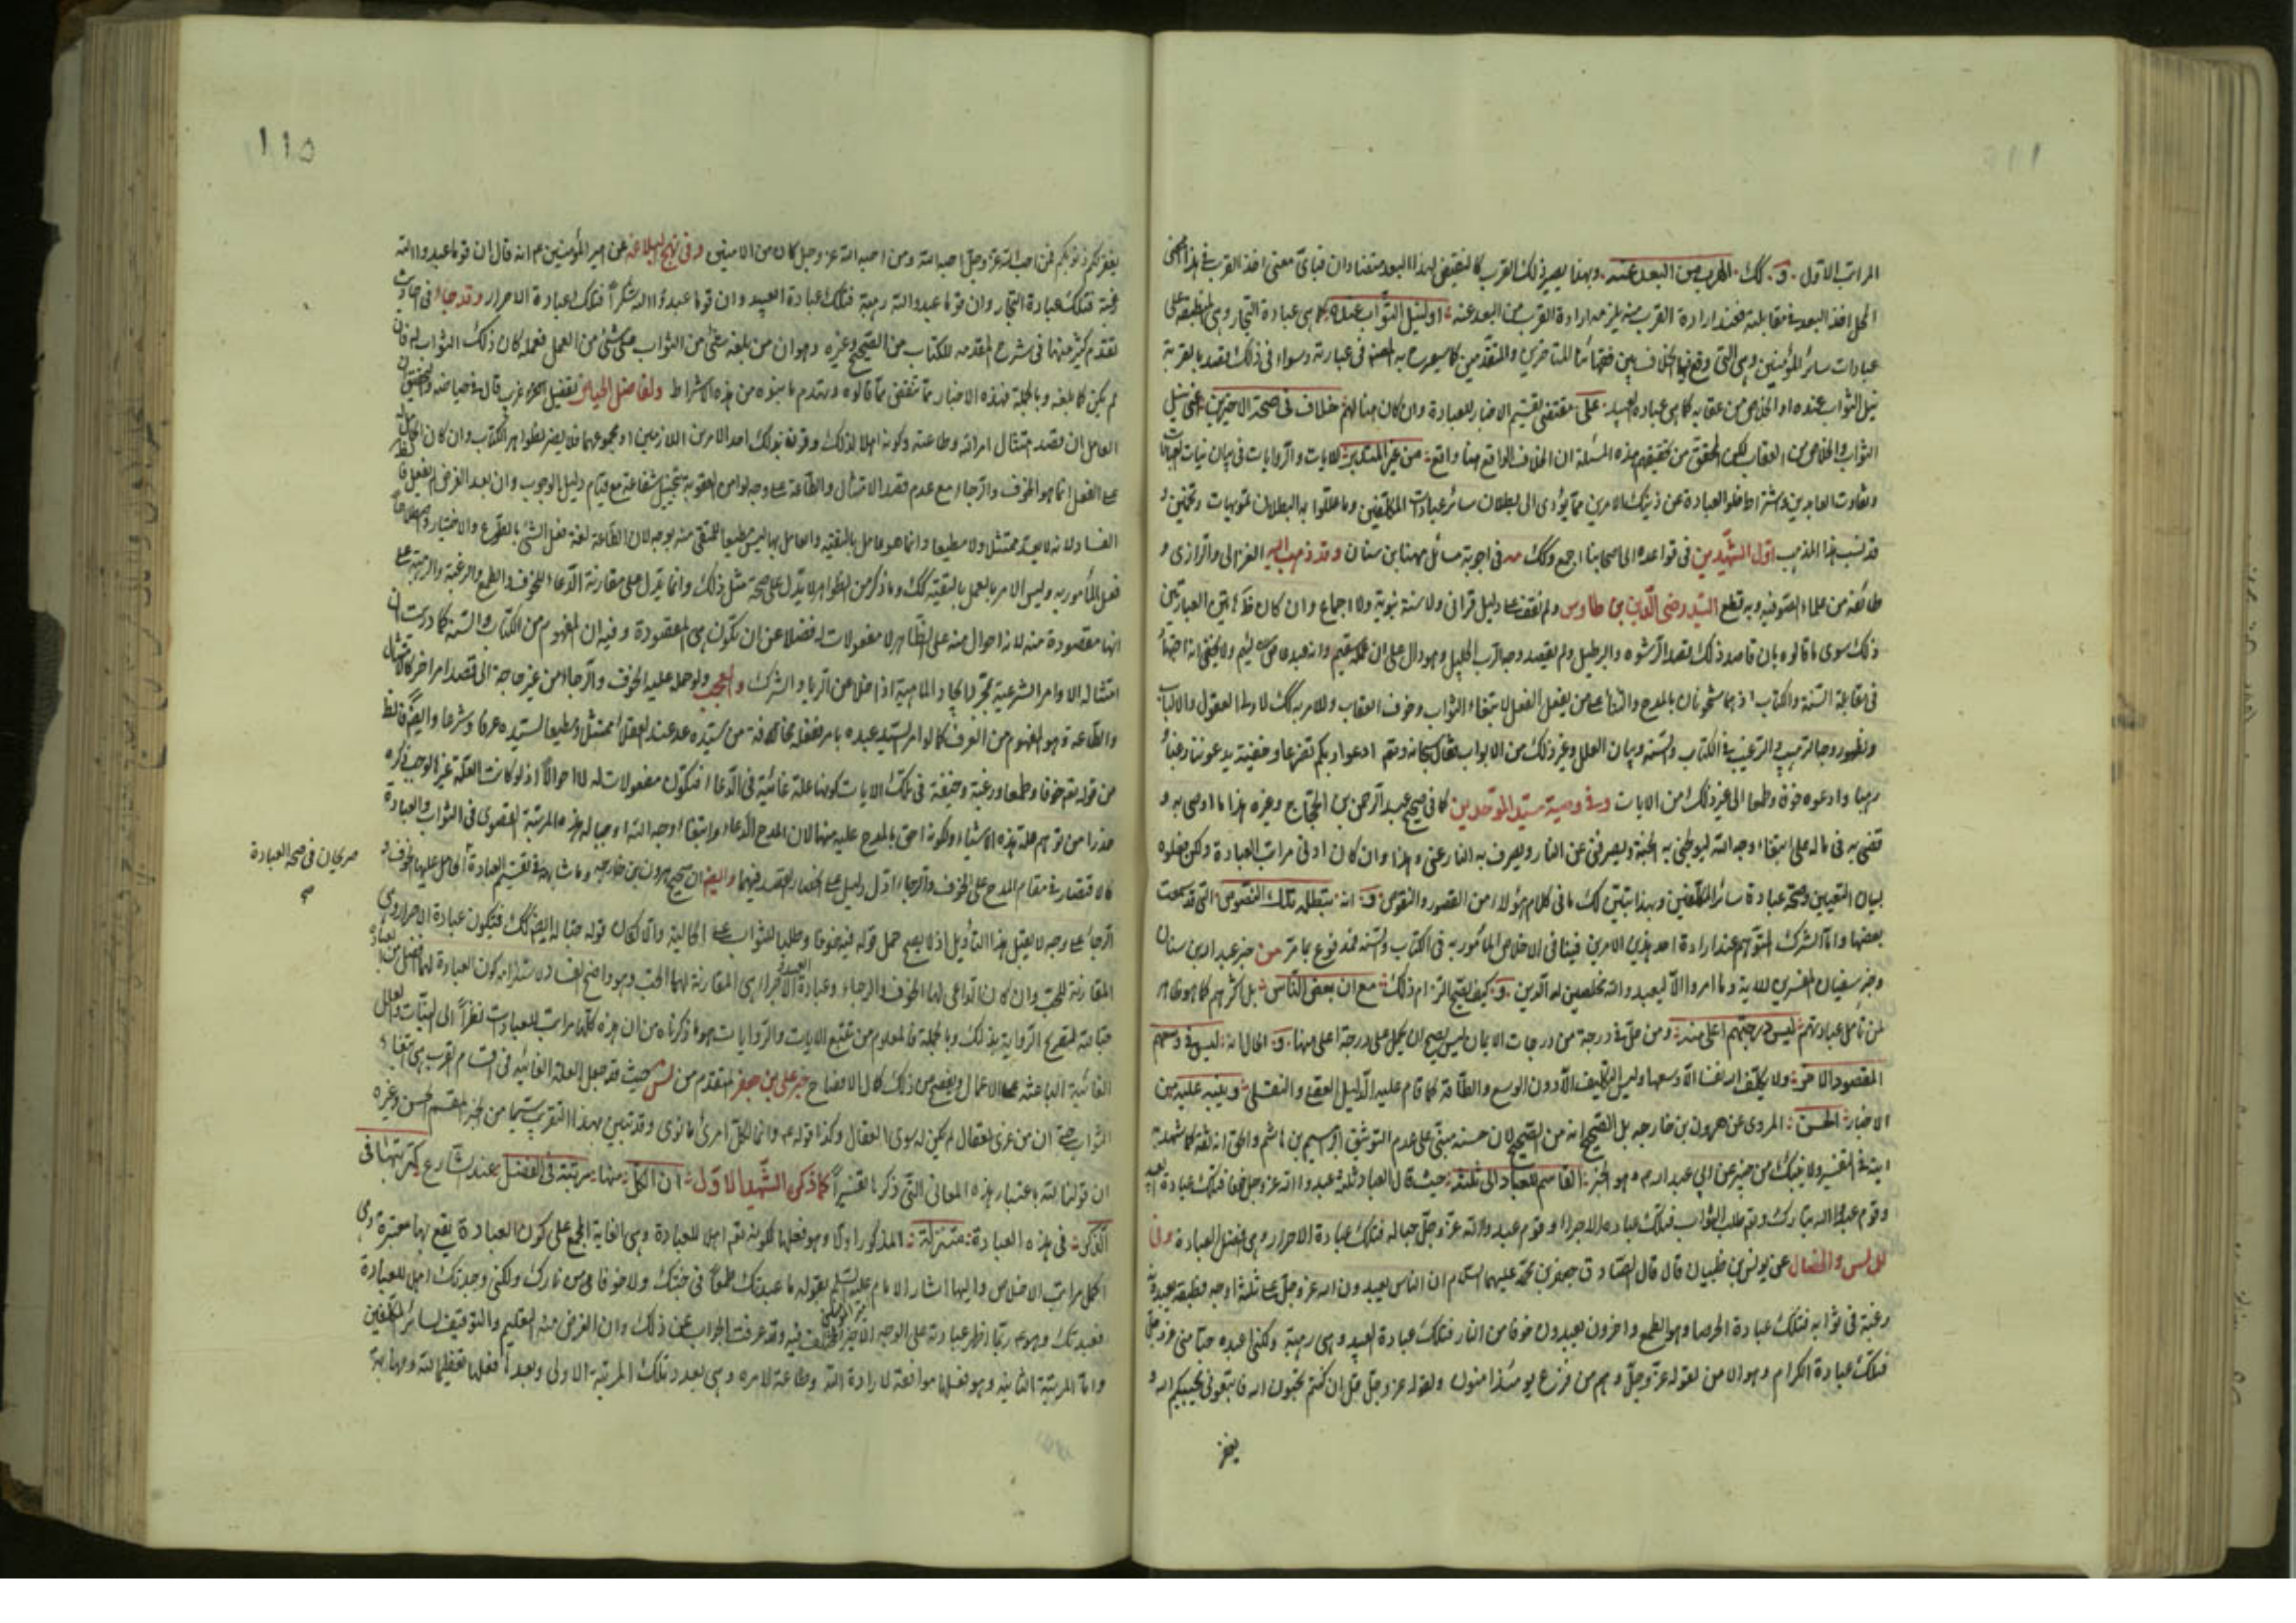 المراتب الاول و كك الهرب من البعد عنه وبهذا يصير ذلك القرب كالنقيض لهذا البعد متضادان فباى معنى اخذ القرب فى هذا
المحل اخذ البعد فى مقابلته فعند ارادة القرب منه يلزمه ارادة القرب من البعد عنه او لنيل الثواب عنده كما هى عبادة التجار وهى المنطبقة على
عبادات سائر المؤمنين وهى التى وقع فيها الخلاف بين فقهائنا المتاخرين والمتقدمين كما سيصرح به المصنف فى عبارته وسواء فى ذلك قصد بالقربة
نيل الثواب عنده او الخلاص من عقابه كما هى عبادة العبيد على مقتضى تقسيم الاخبار للعبادة وان كان هنا لهم خلاف فى صحة الاخيرين اعنى نيل
الثواب والخلاص من العقاب لكن المحقق من تحقيقهم هذه المسئلة ان الخلاف الواقع هنا واقع من غير المتدبر للايات والروايات فى بيان نيات
وتفاوت العابدين واشتراط خلو العبادة عن ذينك الامرين مما يؤدى الى بطلان سائر عبادات المكلفين وما عللوا به البطلان تمويهات وتخمين و
قد نسب هذا المذهب اول الشهيدين فى قواعده الى اصحابنا اجمع وكك فى اجوبة مسائل مهنا بن سنان وقد ذهب اليه الغزالى والرازى و
طائفة من علماء الصوفية وبه قطع السيد رضى الدين بن طاوس ولم نقف على دليل قرانى ولا سنة نبوية ولا اجماع وان كان
ذلك سوى ما قالوه بان قاصد ذلك قصد الرشوه والبرطيل ولم يقصد وجه الرب الجليل وهو دال على ان عمله سقيم وانه عبد لئيم ولا يخفى
فى مقابلة السنة والكتاب اذ هما مشحونان بالمدح والثناء على من يفعل الفعل لابتغاء الثواب وخوف العقاب وللامر به كك لاولى العقول والالباب
ولظهور وجه الترهيب والترغيب فى الكتاب والسنة وبيان العلل وغير ذلك من الابواب فقال سبحانه وتعالى ادعوا ربكم تضرعا وخفية يدعوننا رغبا و
رهبا وادعوه خوفا وطمعا الى غير ذلك من الايات وفى وصية سيد الموحدين كما فى صحيح عبد الرحمن بن الحجاج وغيره هذا ما اوصى به و
قضى به فى ماله على ابتغاء وجه الله ليولجنى به الجنة ويصرفنى عن النار ويصرف به النار عنى وهذا وان كان ادنى مراتب العبادة ولكن فعلوه
لبيان التعيين وصحة عبادة سائر المكلفين وبهذا يتبين لك ما فى كلام هؤلاء من القصور والنقوص و انه يتطله تلك النصوص التى قد سمعت
بعضها واما الشرك المتوهم عند ارادة احد هذين الامرين فينافى الاخلاص المامور به فى الكتاب والسنة فمدفوع بما مر من خبر عبد الله بن سنان
وخبر سفيان المفسرين للاية وما امروا الا ليعبدوا الله مخلصين له الدين و كيف يصح التزام ذلك مع ان بعض الناس بل اكثرهم كما هو ظاهر
لمن تامل عباداتهم ليس درجتهم اعلى منه ومن حل فى درجة من درجات الايمان ليس يصح ان يحمل على درجة اعلى منها و الحال انه ليس فى وسعهم
المقصود الاخر ولا يكلف الله نفسا الا وسعها وليس التكليف الا دون الوسع والطاقة كما قام عليه الدليل العقلى والنقلى وينبه عليه من
الاخبار الحسن المروى عن هرون بن خارجه بل الصحيح انه من الصحيح لان حسنه مبنى على عدم التوثيق لابراهيم بن هاشم والحق انه ثقة
عن ابى عبد الله هو الخبر القاسم للعباد الى ثلثه حيث قال العباد ثلثة قوم عبدوا الله عز وجل خوفا فتلك عبادة العبيد
وقوم عبدوا الله تبارك وتعالى طلب الثواب فتلك عبادة الاجراء وقوم عبدوا الله عز وجل حبا له فتلك عبادة الاحرار وهى افضل العبادة وفى
المجالس والخصال عن يونس بن ظبيان قال قال الصادق جعفر بن محمد عليهما السلام ان الناس يعبدون الله عز وجل على ثلثة اوجه فطبقة يعبدونه
رغبة فى ثوابه فتلك عبادة الحرصا وهو الطمع واخرون يعبدون خوفا من النار فتلك عبادة العبيد وهى رهبة ولكنى اعبده حبا منى عز وجل
فتلك عبادة الكرام وهو الامن لقوله عز وجل وهم من فزع يومئذ امنون ولقوله عز وجل قل ان كنتم تحبون الله فاتبعونى يحببكم الله و
يغفر
١١٥
يغفر لكم ذنوبكم فمن احب الله عز وجل احبه الله ومن احبه الله عز وجل كان من الامنين وفى نهج البلاغه عن امير المؤمنين م انه قال ان قوما عبدوا الله
رغبة فتلك عبادة التجار وان قوما عبدوا الله رهبة فتلك عبادة العبيد وان قوما عبدوا الله شكرا فتلك عبادة الاحرار وقد جاء فى احاديث
تقدم كثير منها فى شرح المقدمه للكتاب من الصحيح وغيره وهو ان من بلغه شئ من الثواب على شئ من العمل فعمله كان ذلك الثواب له وان
لم يكن كما بلغه وبالجملة فهذه الاخبار مما تنفى ما قالوه وتهدم ما بنوه من هذه الاشتراط ولفاضل الحبل تفصيل اخر غريب قال
العامل ان قصد امتثال امر الله وطاعته وكونه اهلا لذلك وقرنه بذلك احد الامرين اللازمين او مجموعهما فلا يضر لظواهر الكتاب وان كان
على الفعل انما هو الخوف والرجاء مع عدم قصد الامتثال والطاعة
الفساد لانه لا يعد ممتثلا ولا مطيعا وانما هو عامل بالتقية والعامل بها ليس مطيعا للمتقى منه بوجه لان الطاعة لغة فعل الشئ بالطوع والاختيار
فعل المأمور به وليس الامر بالعمل بالتقية كك وما ذكر من الظواهر لا يدل على صحة مثل ذلك وانما يدل على مقارنة الدعاء للخوف والطمع والرغبة والرهبة
انها مقصودة منه لانها احوال منه على الظاهر لا مفعولات له فضلا عن ان تكون هى المقصودة وفيه ان المفهوم من الكتاب والسنة كما دريت ان
امتثاله الاوامر الشرعية مجرد ايجاد الماهية اذا خلا عن الريا والشرك والعجب ولو حمله عليه الخوف والرجاء من غير حاجة الى قصد امر اخر كالامتثال
والطاعة وهو المفهوم من العرف كما لو امر السيد عبده بامر ففعله مخافة من سيده عد عند العقلاء ممتثلا ومطيعا لسيده عرفا وشرعا وايضا
من قوله تعالى خوفا وطمعا ورغبة وخيفة فى تلك الايات كونها علة غائية فى الدعاء فتكون مفعولات له لا احوالا اذ لو كانت العلة غيرها لوجب ذكره
حذرا من توهم علة هذه الاشياء ولكونه احق بالمدح عليه منها لان المدح الدعاء وابتغاء وجه الله او حبا له هذه المرتبة القصوى فى الثواب والعبادة
كالاقتصار فى مقام المدح على الخوف والرجاء ادل دليل على انحصار القصد فيهما وايضا ان صحيح هرون بن خارجه وما شابهه فى تقسيم العبادة الحامل عليها الخوف و
الرجاء على وجه لا يقبل هذا التأويل اذ لا يصح حمل قوله فيه خوفا وطلبا للثواب على الحالية والا لكان قوله حبا له ايضا كك فتكون عبادة الاحرار هى
المقارنة للحب وان كان الداعى لها الخوف والرجاء وعبادة العبيد والاجراء هى المقارنة لهما الحب وهو واضح الفساد
حبا منه لتصريح الرواية بذلك وبالجملة فالمعلوم من تتبع الايات والروايات هو ما ذكرناه من ان هذه كلها مراتب للعبادات نظرا الى النيات والعلل
الغائية الباعثة على الاعمال ويفصح من ذلك كمال الافصاح خبر على بن جعفر المتقدم من حيث قد جعل العلة الغائيه فى اقسام القرب هى ابتغاء
الثواب حتى ان من غزى لعقال لم يكن له سوى العقال وكذا قوله م وانما لكل امرئ ما نوى وقد تبين بهذا التقرير سيما من الخبر المقسم الحسن وغيره
ان قولنا لله باعتبار هذه المعانى التى ذكرنا تفسيرا كما ذكره الشهيد الاول ان لكل منها مرتبة فى الفضل عند الشارع كمرتبتها فى
الذكر فى هذه العبادة منزلة المذكور اولا وهو فعلها لكونه تعالى اهل للعبادة وهى الغاية المجمع على كون العبادة تقع بها معتبرة وهى
اكمل مراتب الاخلاص واليها اشار الامام عليه السلم بقوله ما عبدتك طمعا فى جنتك ولا خوفا من نارك ولكنى وجدتك اهل للعبادة
فعبدتك وهو م ربما اظهر عبادته على الوجه الاخير وقد عرفت الجواب عن ذلك وان الغرض منه التعليم والتوقيف لسائر المكلفين
واما المرتبة الثانية وهو فعلها موافقة لارادة الله وطاعة لامره وهى بعد تلك المرتبة الاولى وبعدها فعلها تعظيما لله ومهابة
صريحان فى صحة العبادة